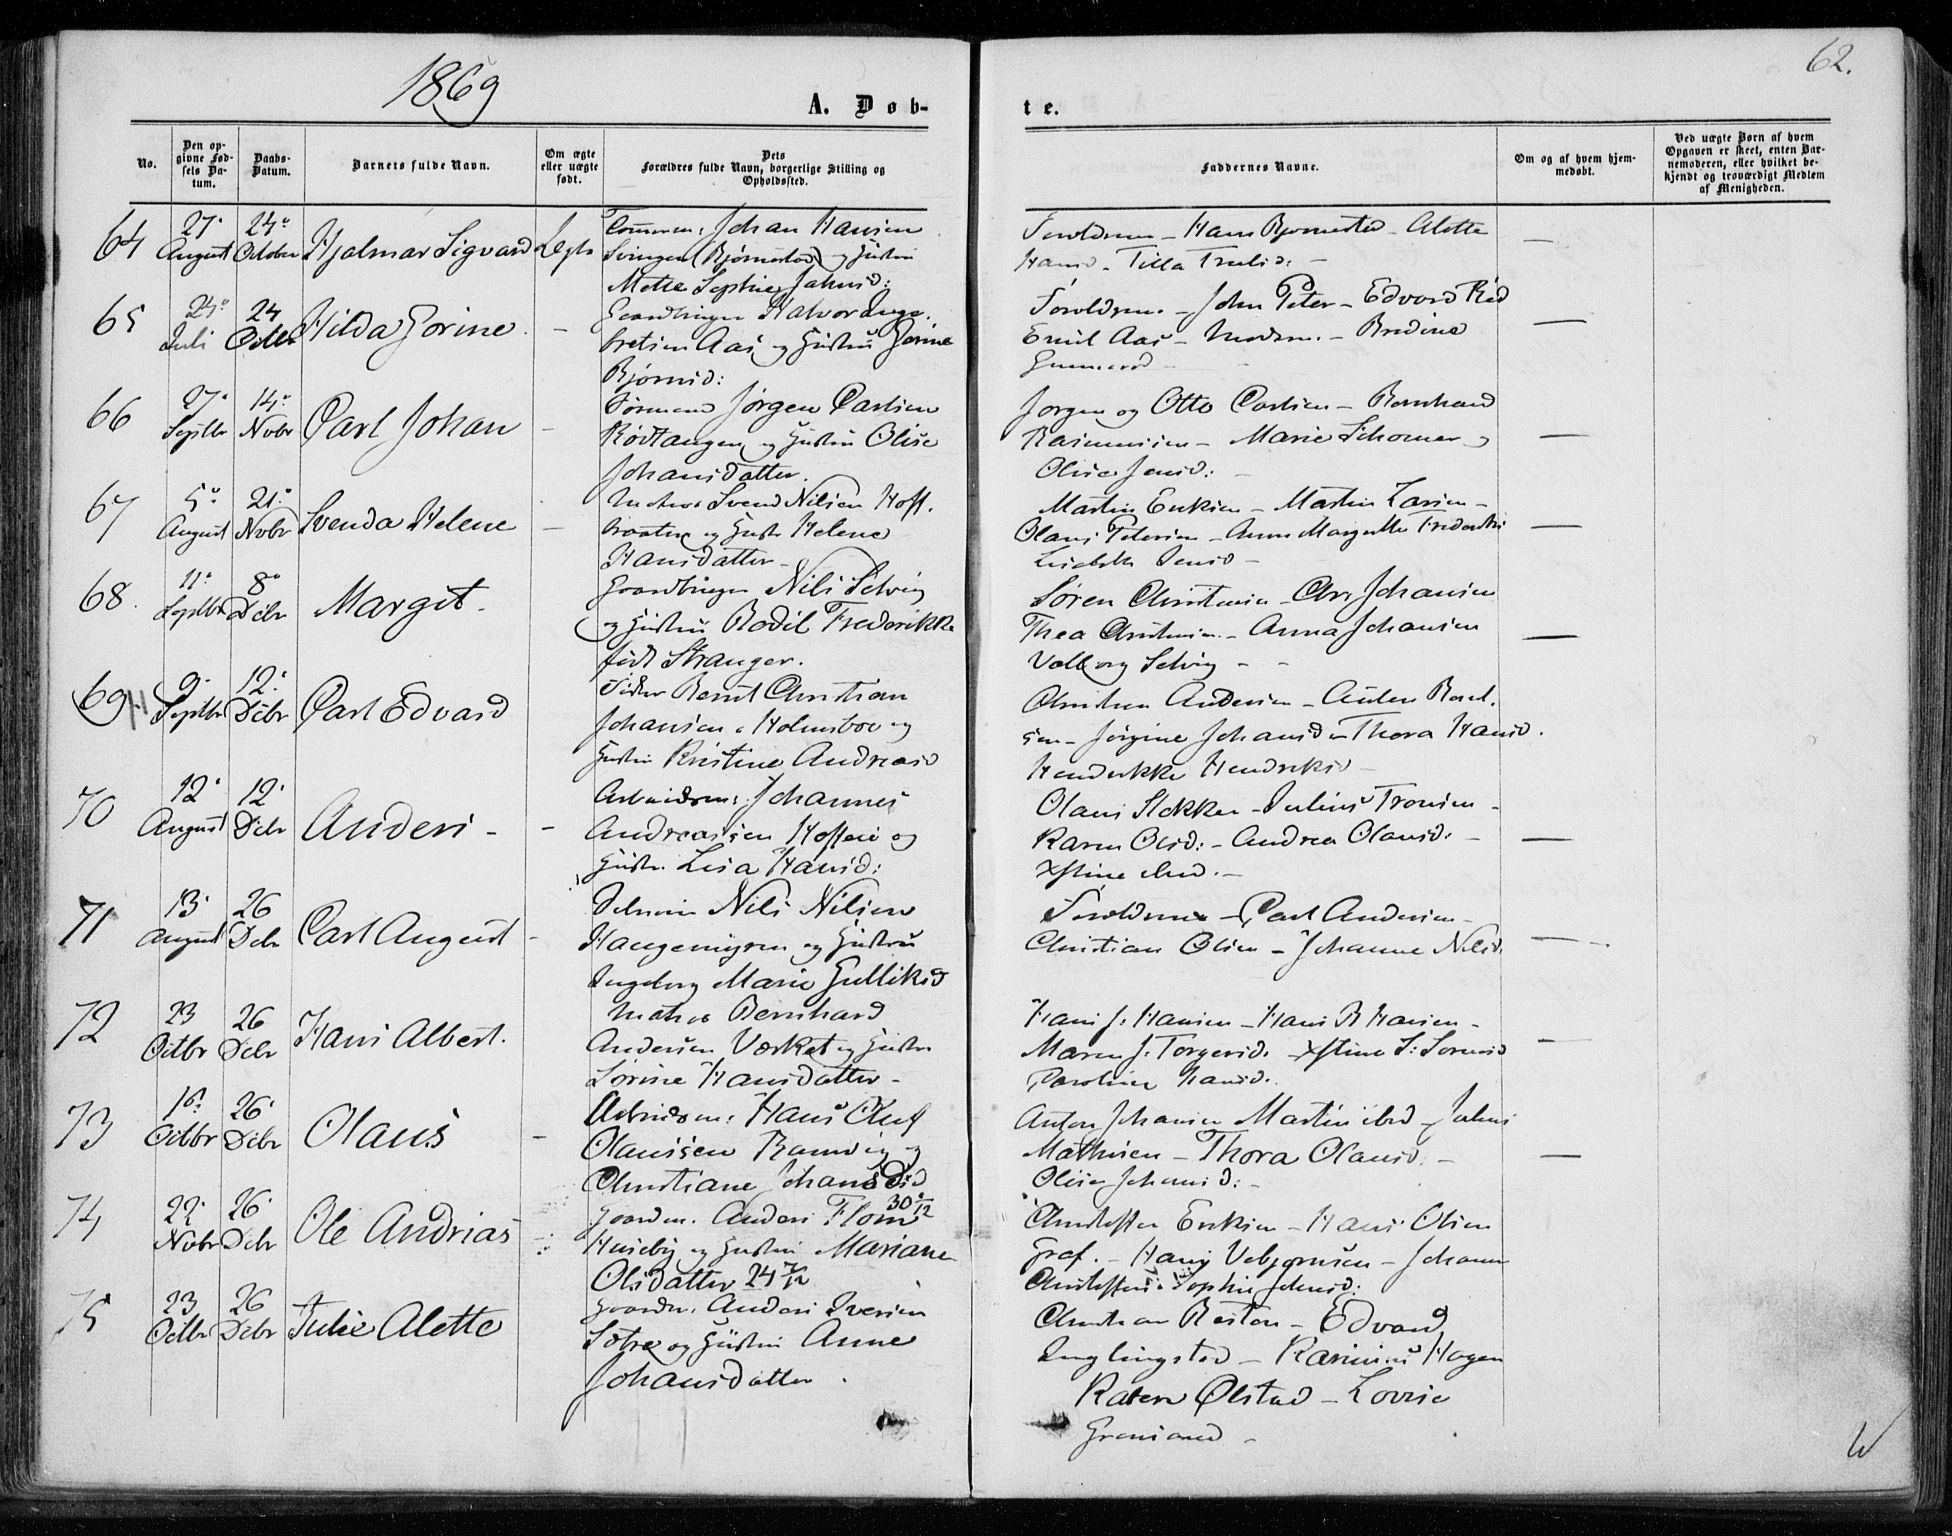 1869
62.
A. Døb-
te.
No.
Den op-
givne Fød-
sels Da-
tum.
Daabs-
Datum.
Barnets fulde Navn.
Om ægte
eller uægte
født.
Dets
Forældres fulde Navn, borgerlige Stilling og
Opholdssted.
Faddernes Navne.
Om og af hvem hjem-
medøbt.
Ved uægte Børn af hvem
Opgaven er skeet, enten Bar-
nemoderen, eller hvilket be-
kjendt og troværdigt Medlem
af Menigheden.
64
27.
August
24.
October
Hjalmar Sigvard
Johan Hansen
Svingen (Bjørnestad) og Hustru
Mette Sophie Jahnsd:
Forældrene - Hans Bjørnestad - Alette
Hansd. Tilla Trulsd:
65
24.
Juli
24
Octbr
Hilda Gorine.
-
Gaardbruger Halvor Inge-
bretsen Aas og Hustru Gorine
Bjørnsd:
Forældrene - John Peter - Edvard Rød
Emil Aas - Moderen. - Bredine
66
27.
Septbr
14.
Novbr
Carl Johan
-
Jørgen Carlsen
Rødtangen og Hustru Olise
Johansdatter.
Jørgen og Otto Carlsen - Bernhard
Rasmussen - Marie og
Olise Jensd:
67
5.
August
21.
Novbr
Svenda Helene
-
Matros Svend Nilsen Hoff.
braaten og Hustr Helene
Hansdatter -
Martin Eriksen - Martin Larsen -
Olaus Petersen - Anne Margrethe
Lisebeth Jensd -
68.
11.
Septbr
8.
Debr
Margit.
Gaardbruger Nils Selvig
og Hustru Bodil Frederikke
født Stranger.
Søren Christensen - Chr. Johansen
Thea Christensen. - Anna Johansen
Valborg Selvig - -
69
9.
Septbr
12.
Debr
Carl Edvard
Fisker Bernt Christian
Johansen Holmsboe og
Hustru Kristine Andreasd
Christian Andersen - Anders Bernt.
sen - Jørgine Johansd - Thora Hansd.
Hendrikke Hendriksd -
70
12.
August
12.
Debr
Anders -
-
Arbeidsm: Johannes
Andreassen Hoffen og
Hustr. Lisa Hansd:
Olaus Stokker - Julius Tronsen -
Karen Olsd: - Andrea Olausd: -
Xstine ibid. -
71
13.
August
26
Debr
Carl August
-
Nils Nilsen
Haugemyren og Hustru
Ingeborg Marie Gulliksd
Forældrene - Carl Andersen -
Christian Olsen - Johanne Nilsd.
72
23
Octbr
26
Debr
Hans Albert.
Matros Bernhard
Andersen Værket og Hustru
Sorine Hansdatter -
Hans J. Hansen - Hans B Hansen -
Maren J. Torgersd. - Xstine S: Sørensd
Caroline Hansd.
73
16.
Octbr
26.
Debr
Olaus
-
Arbeidsm: Hans Oluf
Olaussen Ramvig og
Christiane Johansdsd
Anton Johansen Martin ibid - Julius
Mathisen - Thora Olausd. -
Olise Johansd: -
74
22.
Novbr
26.
Debr
Ole Andrias
Gaardm. Anders Flom 30 8/12
Huseby og Hustru Mariane
Olsdatter 24 7/12
Christoffer Eriksen - Hans Olsen
Graf. - Hans Vebjørnsen - Johanne
Christoffersd. Sophie Johnsd:
75
23
Octbr
26
Debr
Julie Alette
Gaardm. Anders Iversen
Sotre og Hustru Anne
Johansdatter.
Christian Røstan - Edvard
Inglingstad - Rasmus Hagen
Karen Ølstad - Lovise
Grønsand -